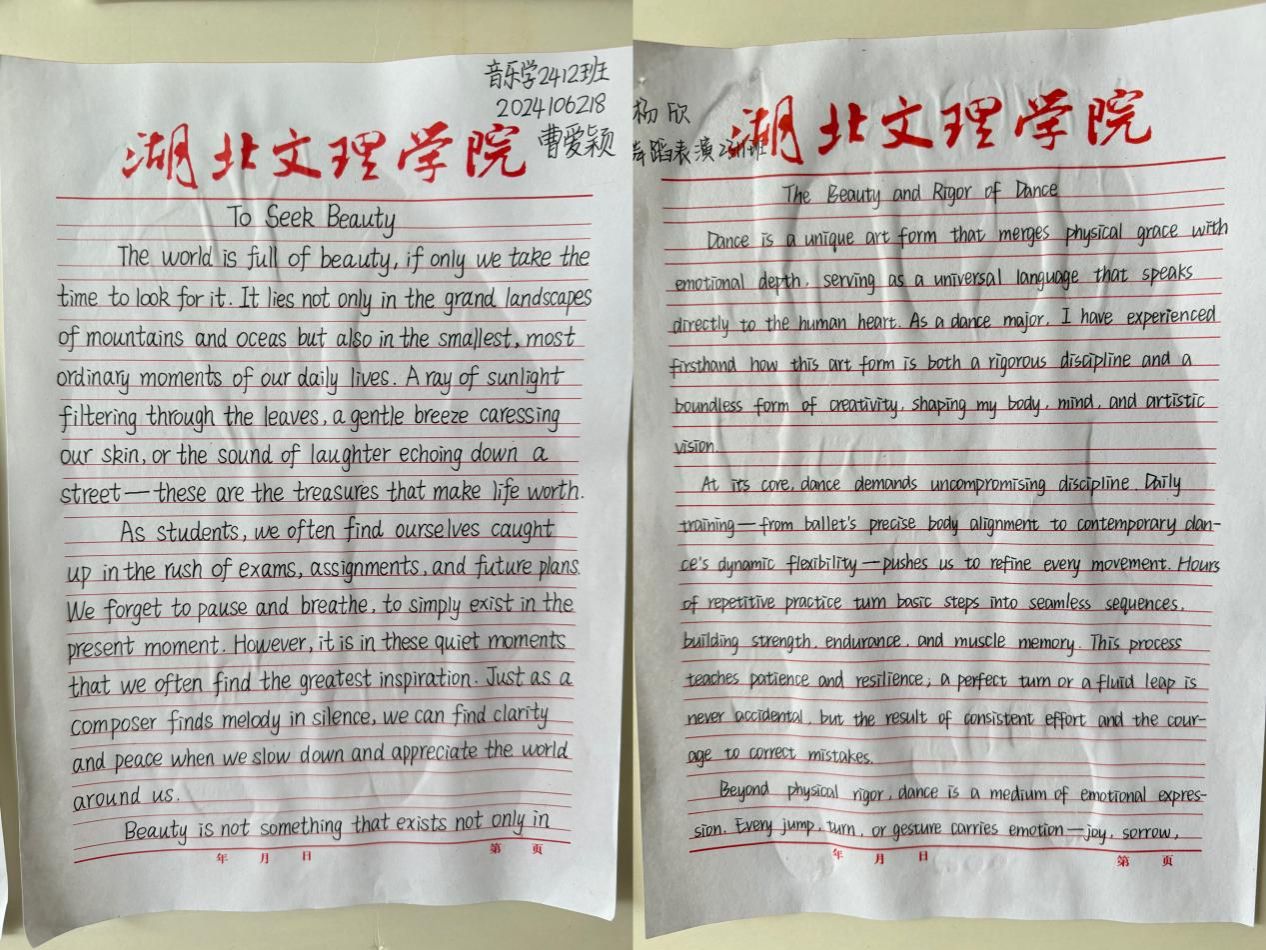 音乐学2412班
2024106218
曹爱颖
湖北文理学院
To Seek Beauty
The world is full of beauty, if only we take the
time to look for it. It lies not only in the grand landscapes
of mountains and oceas but also in the smallest, most
ordinary moments of our daily lives. A ray of sunlight
filtering through the leaves, a gentle breeze caressing
our skin, or the sound of laughter echoing down a
street—these are the treasures that make life worth.
As students, we often find ourselves caught
up in the rush of exams, assignments, and future plans.
We forget to pause and breathe, to simply exist in the
present moment. However, it is in these quiet moments
that we often find the greatest inspiration. Just as a
composer finds melody in silence, we can find clarity
and peace when we slow down and appreciate the world
around us.
Beauty is not something that exists not only in
年 月 日 第 页
杨欣
舞蹈表演
湖北文理学院
The Beauty and Rigor of Dance
Dance is a unique art form that merges physical grace with
emotional depth, serving as a universal language that speaks
directly to the human heart. As a dance major, I have experienced
firsthand how this art form is both a rigorous discipline and a
boundless form of creativity, shaping my body, mind, and artistic
vision.
At its core, dance demands uncompromising discipline. Daily
training—from ballet's precise body alignment to contemporary dan-
ce's dynamic flexibility—pushes us to refine every movement. Hours
of repetitive practice turn basic steps into seamless sequences,
building strength, endurance, and muscle memory. This process
teaches patience and resilience; a perfect turn or a fluid leap is
never accidental, but the result of consistent effort and the cour-
age to correct mistakes.
Beyond physical rigor, dance is a medium of emotional expres-
sion. Every jump, turn, or gesture carries emotion—joy, sorrow,
年 月 日 第 页